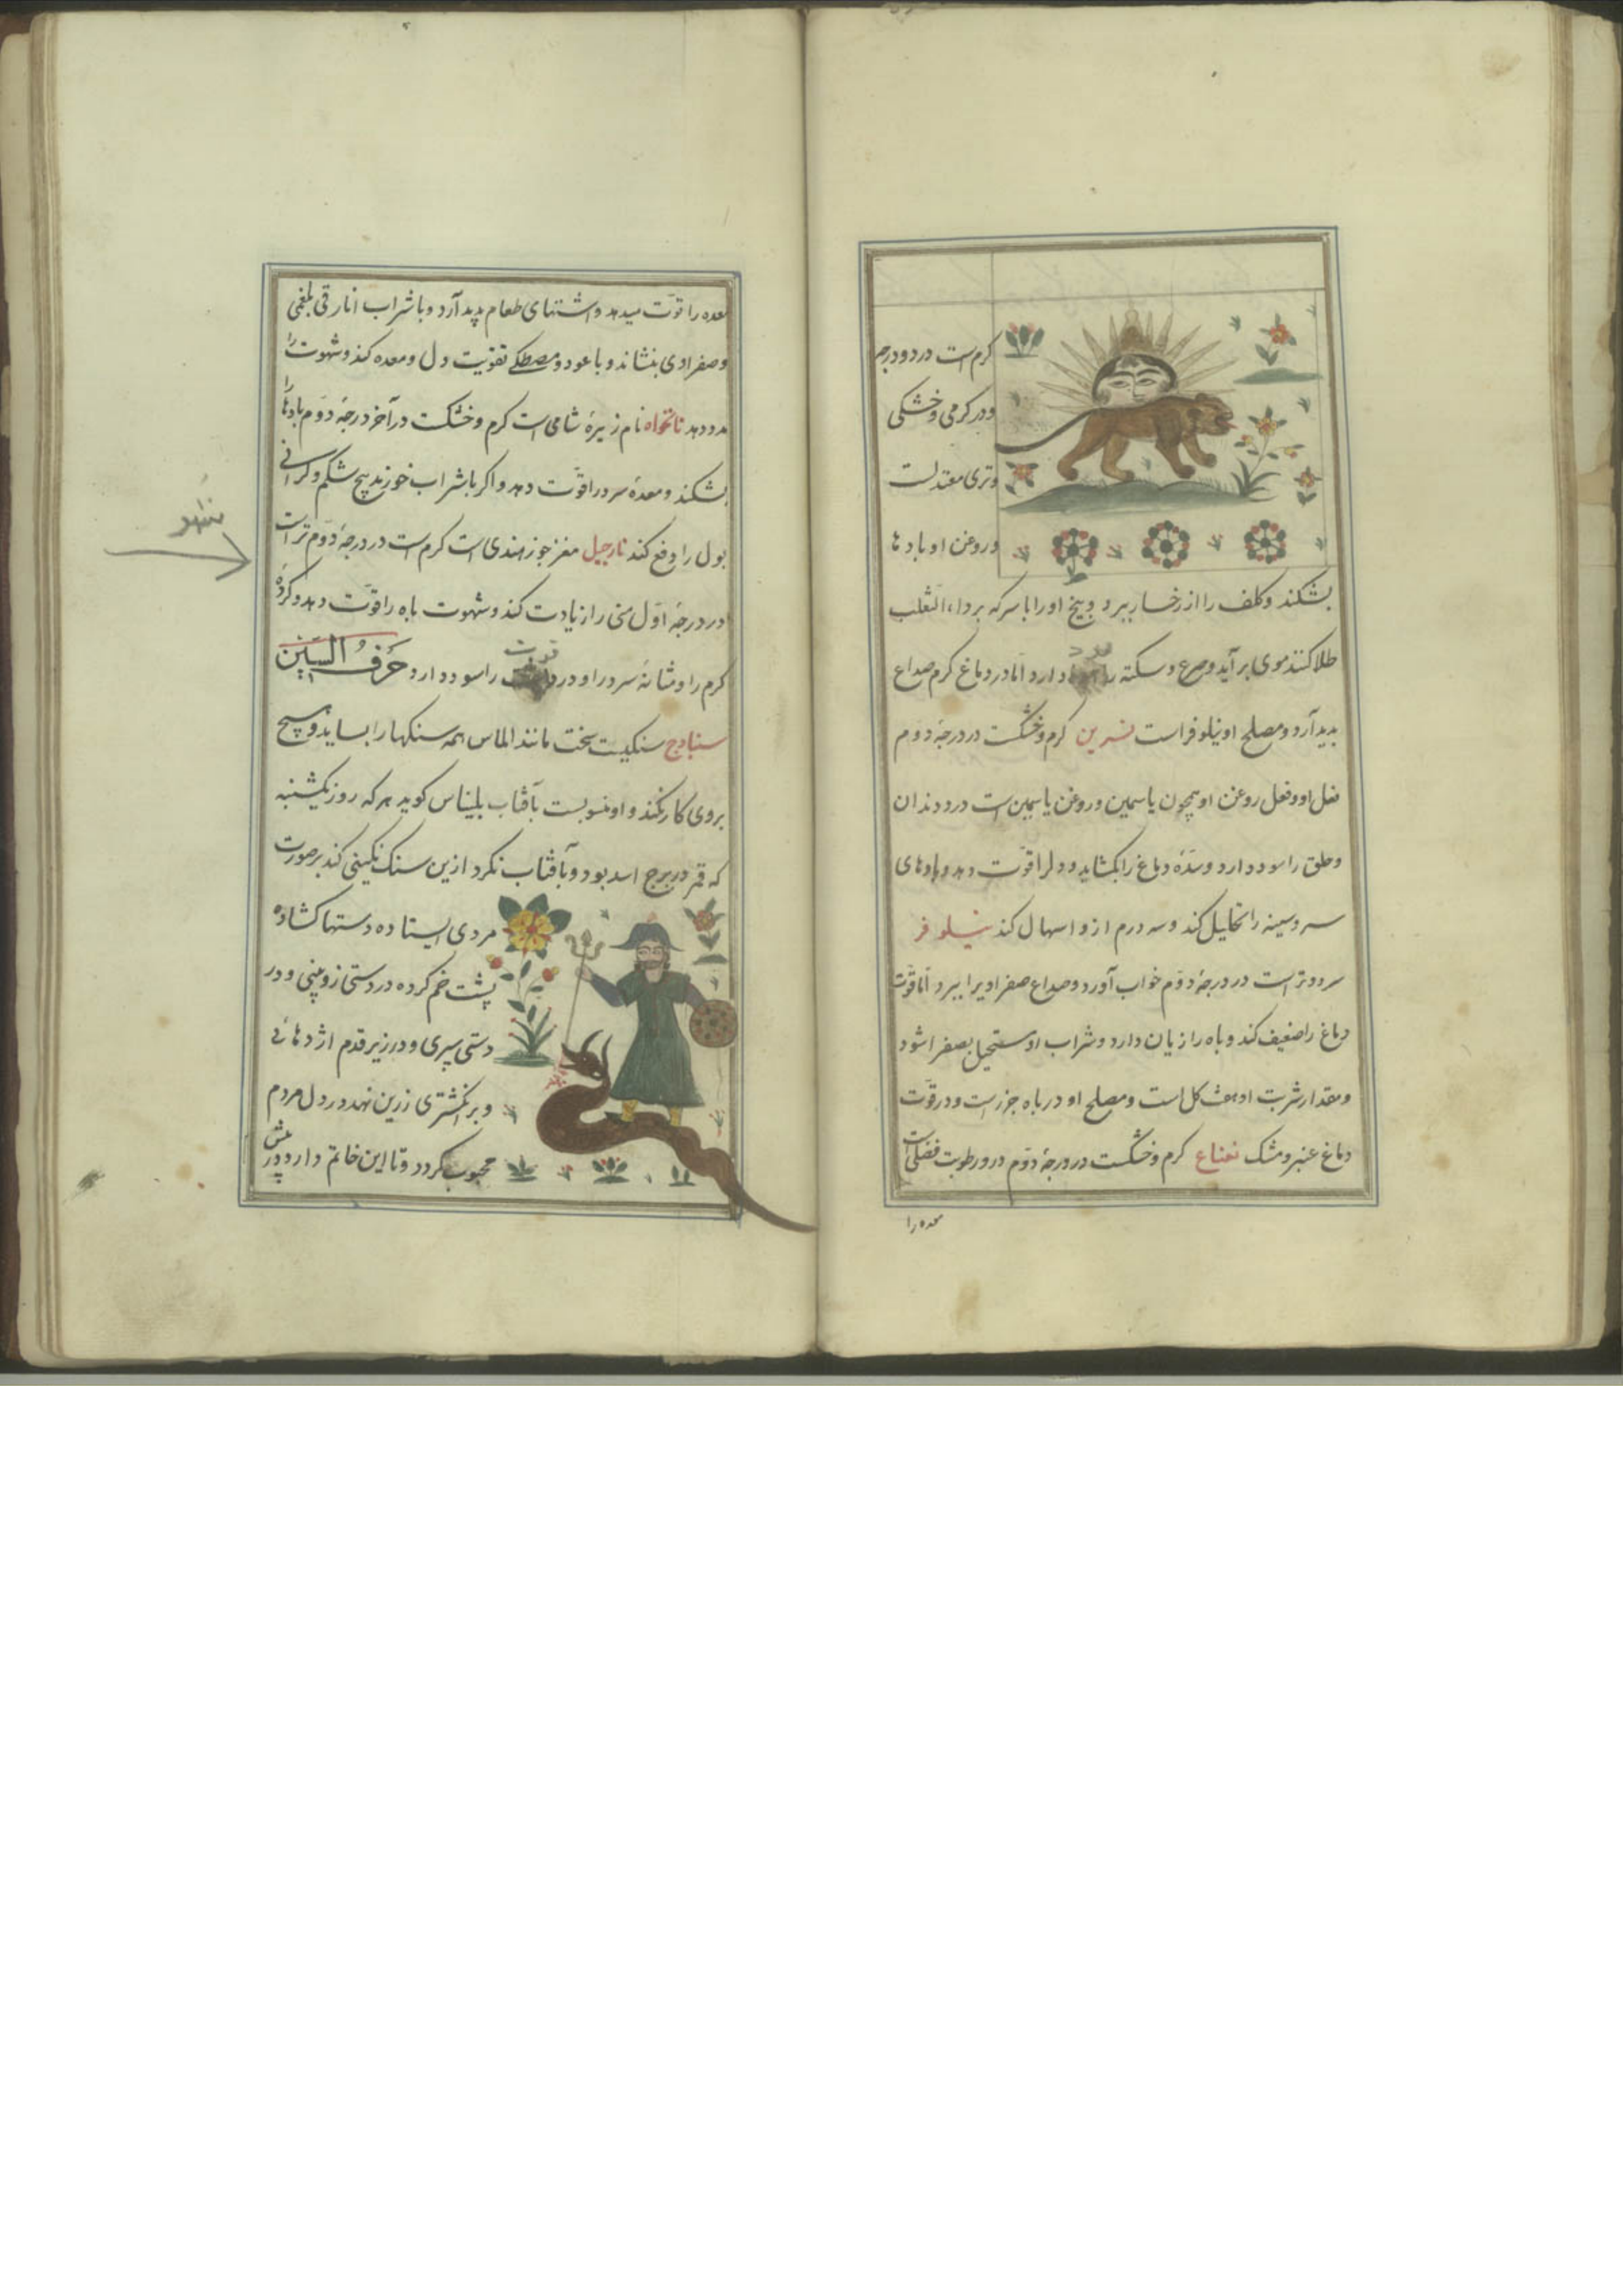 کرم است در دو درجه
و در کرمی و خشکی
و تری معتدلست
و روغن او بادها
بشکند و کلف را از رخسار ببرد و بیخ او را با سرکه بر داء الثعلب
طلا کنند موی برآید و صرع و سکته را سود دارد اما در دماغ کرم صداع
بدید آرد و مصلح او نیلوفر است نسرین کرم و خشکست در درجهٔ دوم
فعل او و فعل روغن او همچون یاسمین و روغن یاسمین است درد دندان
و حلق را سود دارد و سدهٔ دماغ را بکشاید و دل را قوّت دهد و بادهای
سر و سینه را تحلیل کند و سه درم ازو اسهال کند نیلوفر
سرد و تر است در درجهٔ دوم خواب آورد و صداع صفراویرا ببرد اما قوّت
دماغ را ضعیف کند و باه را زیان دارد و شراب او مستحیل بصفرا شود
و مقدار شربت او هفت کل است و مصلح او در باه جزرست و در قوّت
دماغ عنبر و مشک نعناع کرم و خشکست در درجهٔ دوم در و رطوبت فضلی است
معده را
معده را قوّت میدهد و اشتهای طعام پدید آرد و با شراب انار قی بلغمی
و صفراوی بنشاند و با عود و مصطکی تقویت دل و معده کند و شهوت را
مدد دهد نانخواه نام زیرهٔ شامی است کرم و خشکست در آخر درجهٔ دوم بادها را
بشکند و معدهٔ سرد را قوّت دهد و اکر با شراب خورند پیچ شکم و کرانی
بول را دفع کند نارجیل مغز جوز هندی است کرم است در درجهٔ دوم تر است
در درجهٔ اوّل منی را زیادت کند و شهوت باه را قوّت دهد و کردهٔ
کرم را و مثانهٔ سرد را و درد پشت را سود دارد حَرفُ السّین
قوت
سنبادج سنکیست سخت مانند الماس همه سنکها را بساید و هیچ
بروی کار نکند و او منسوبست بآفتاب بلیناس کوید هر که روز یکشنبه
که قمر در برج اسد بود و بآفتاب نکرد ازین سنک نکینی کند بر صورت
مردی ایستاده دستها کشاده
پشت خم کرده در دستی زوپینی و در
دستی سپری و در زیر قدم اژدهائی
و بر انکشتری زرین نهد در دل مردم
محبوب کردد و تا این خاتم دارد